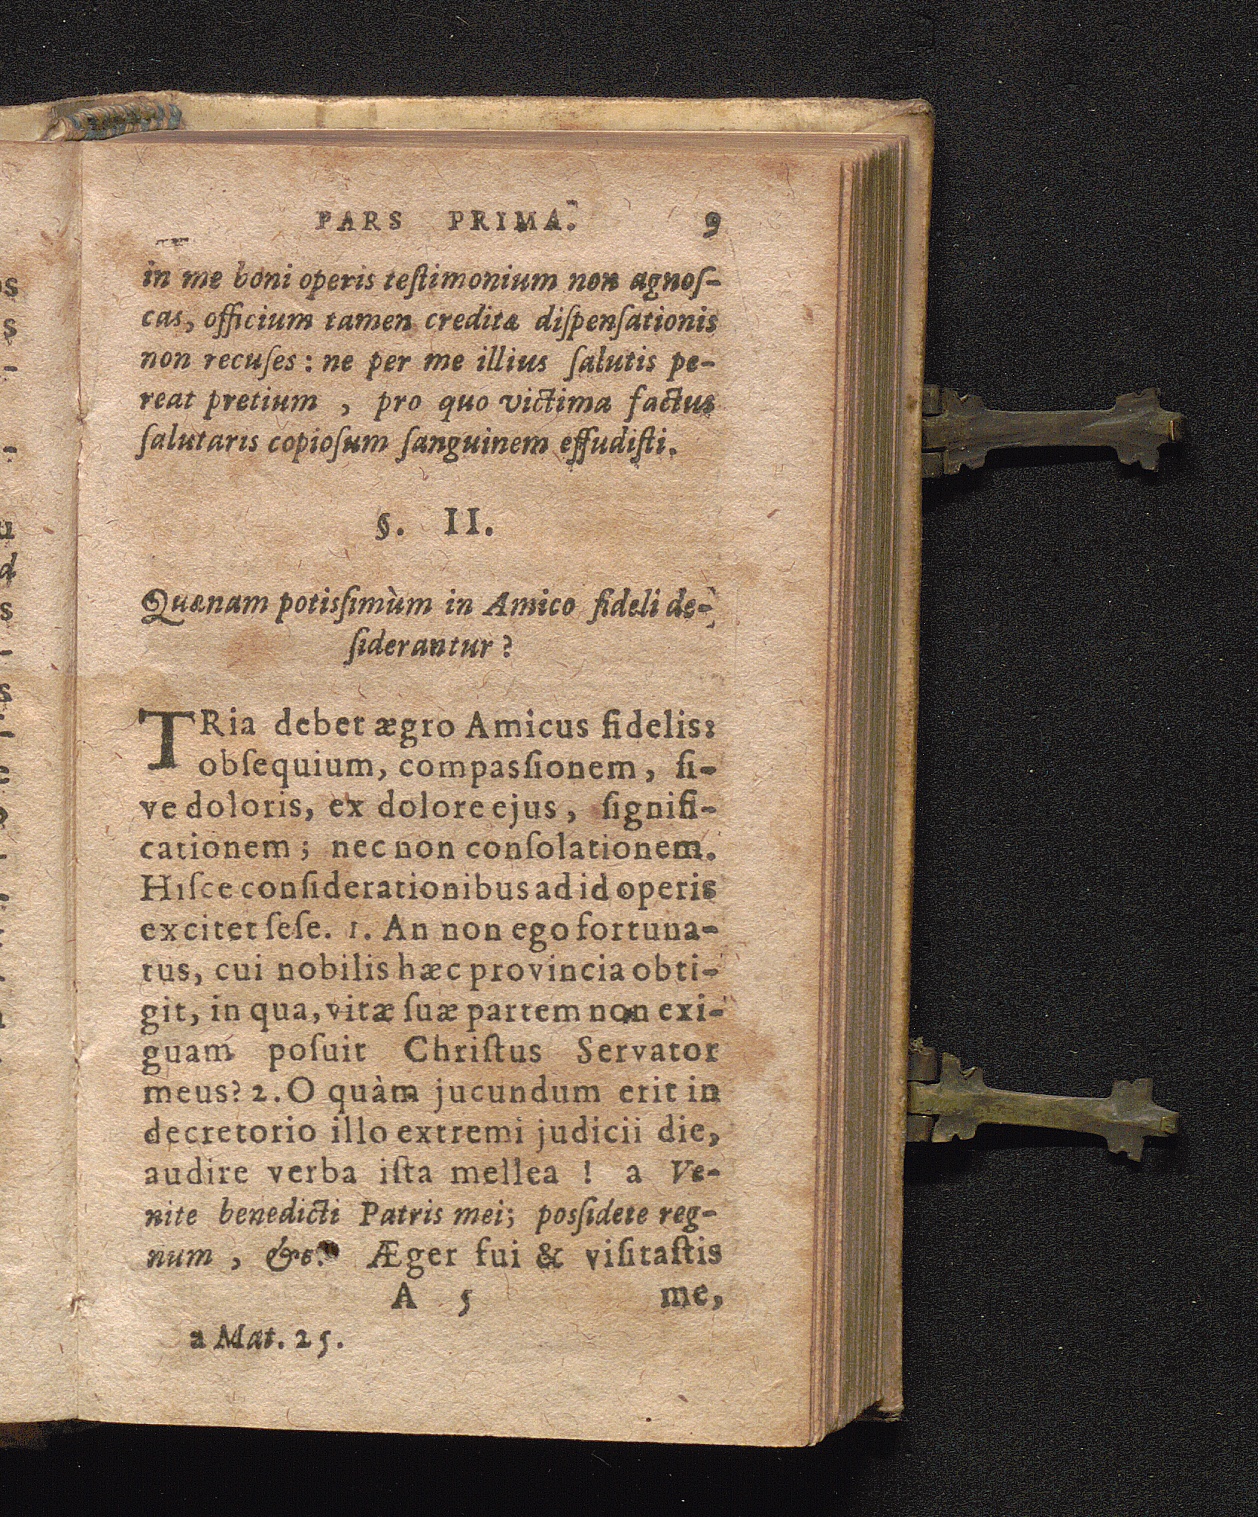 PARS PRIMA. 9
in me boni operis teſtimonium non agnoſ-
cas, officium tamen creditæ diſpenſationis
non recuſes: ne per me illius ſalutis pe-
reat pretium, pro quo victima factus
ſalutaris copioſum ſanguinem effudiſti.
§. II.
Quænam potisſimùm in Amico fideli de-
ſiderantur?
TRia debet ægro Amicus fidelis:
obſequium, compasſionem, ſi-
ve doloris, ex dolore ejus, ſignifi-
cationem; nec non conſolationem.
Hiſce conſiderationibus ad id operis
excitet ſeſe. 1. An non ego fortuna-
tus, cui nobilis hæc provincia obti-
git, in qua, vitæ ſuæ partem non exi-
guam poſuit Chriſtus Servator
meus? 2. O quàm jucundum erit in
decretorio illo extremi judicii die,
audire verba iſta mellea! a Ve-
nite benedicti Patris mei; posſidete reg-
num, &c. Æger fui & viſitaſtis
A 5 me,
a Mat. 25.